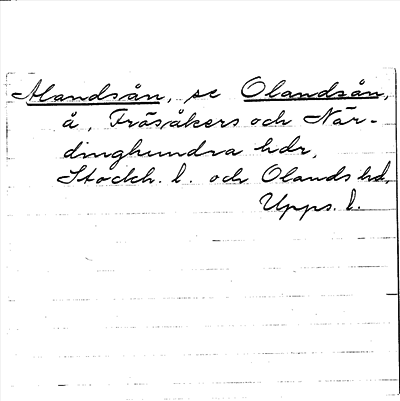 Alandsån, se Olandsån,
å, Frösåkers och När-
dinghundra hdr,
Stockh. l. och Olands hd,
Upps. l.